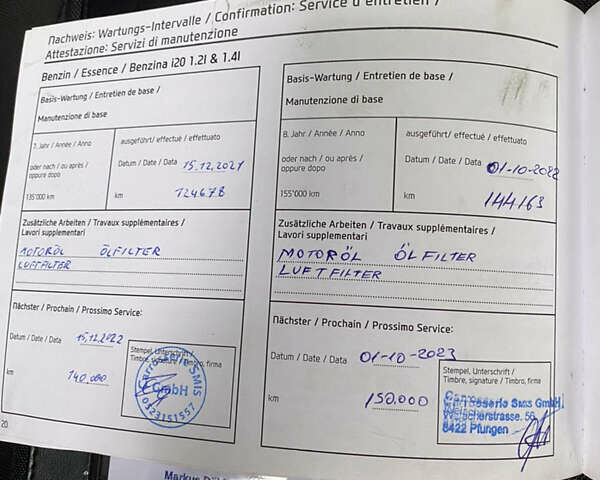 Nachweis: Wartungs-Intervalle / Confirmation: Service d'entretien /
Attestazione: Servizi di manutenzione
Benzin / Essence / Benzina i20 1.2l & 1.4l
Basis-Wartung / Entretien de base /
Manutenzione di base
7. Jahr / Année / Anno
ausgeführt/ effectué / effettuato
oder nach / ou après /
oppure dopo
Datum / Date / Data 15.12.2021
135'000 km
km 124678
Zusätzliche Arbeiten / Travaux supplémentaires /
Lavori supplementari
MOTORÖL ÖLFILTER
LUFTFILTER
Nächster / Prochain / Prossimo Service:
Datum / Date / Data 15.12.2022
km 140.000
Stempel, Unterschrift /
Timbre, signature / Timbro, firma
Carrosserie SMIS
GmbH
0523151557
20
Basis-Wartung / Entretien de base /
Manutenzione di base
8. Jahr / Année / Anno
ausgeführt/ effectué / effettuato
oder nach / ou après /
oppure dopo
Datum / Date / Data 01-10-2022
155'000 km
km 144163
Zusätzliche Arbeiten / Travaux supplémentaires /
Lavori supplementari
MOTORÖL ÖLFILTER
LUFTFILTER
Nächster / Prochain / Prossimo Service:
Datum / Date / Data 01-10-2023
km 150.000
Stempel, Unterschrift /
Timbre, signature / Timbro, firma
Carrosserie SMIS GmbH
Weiacherstrasse. 56
8422 Pfungen